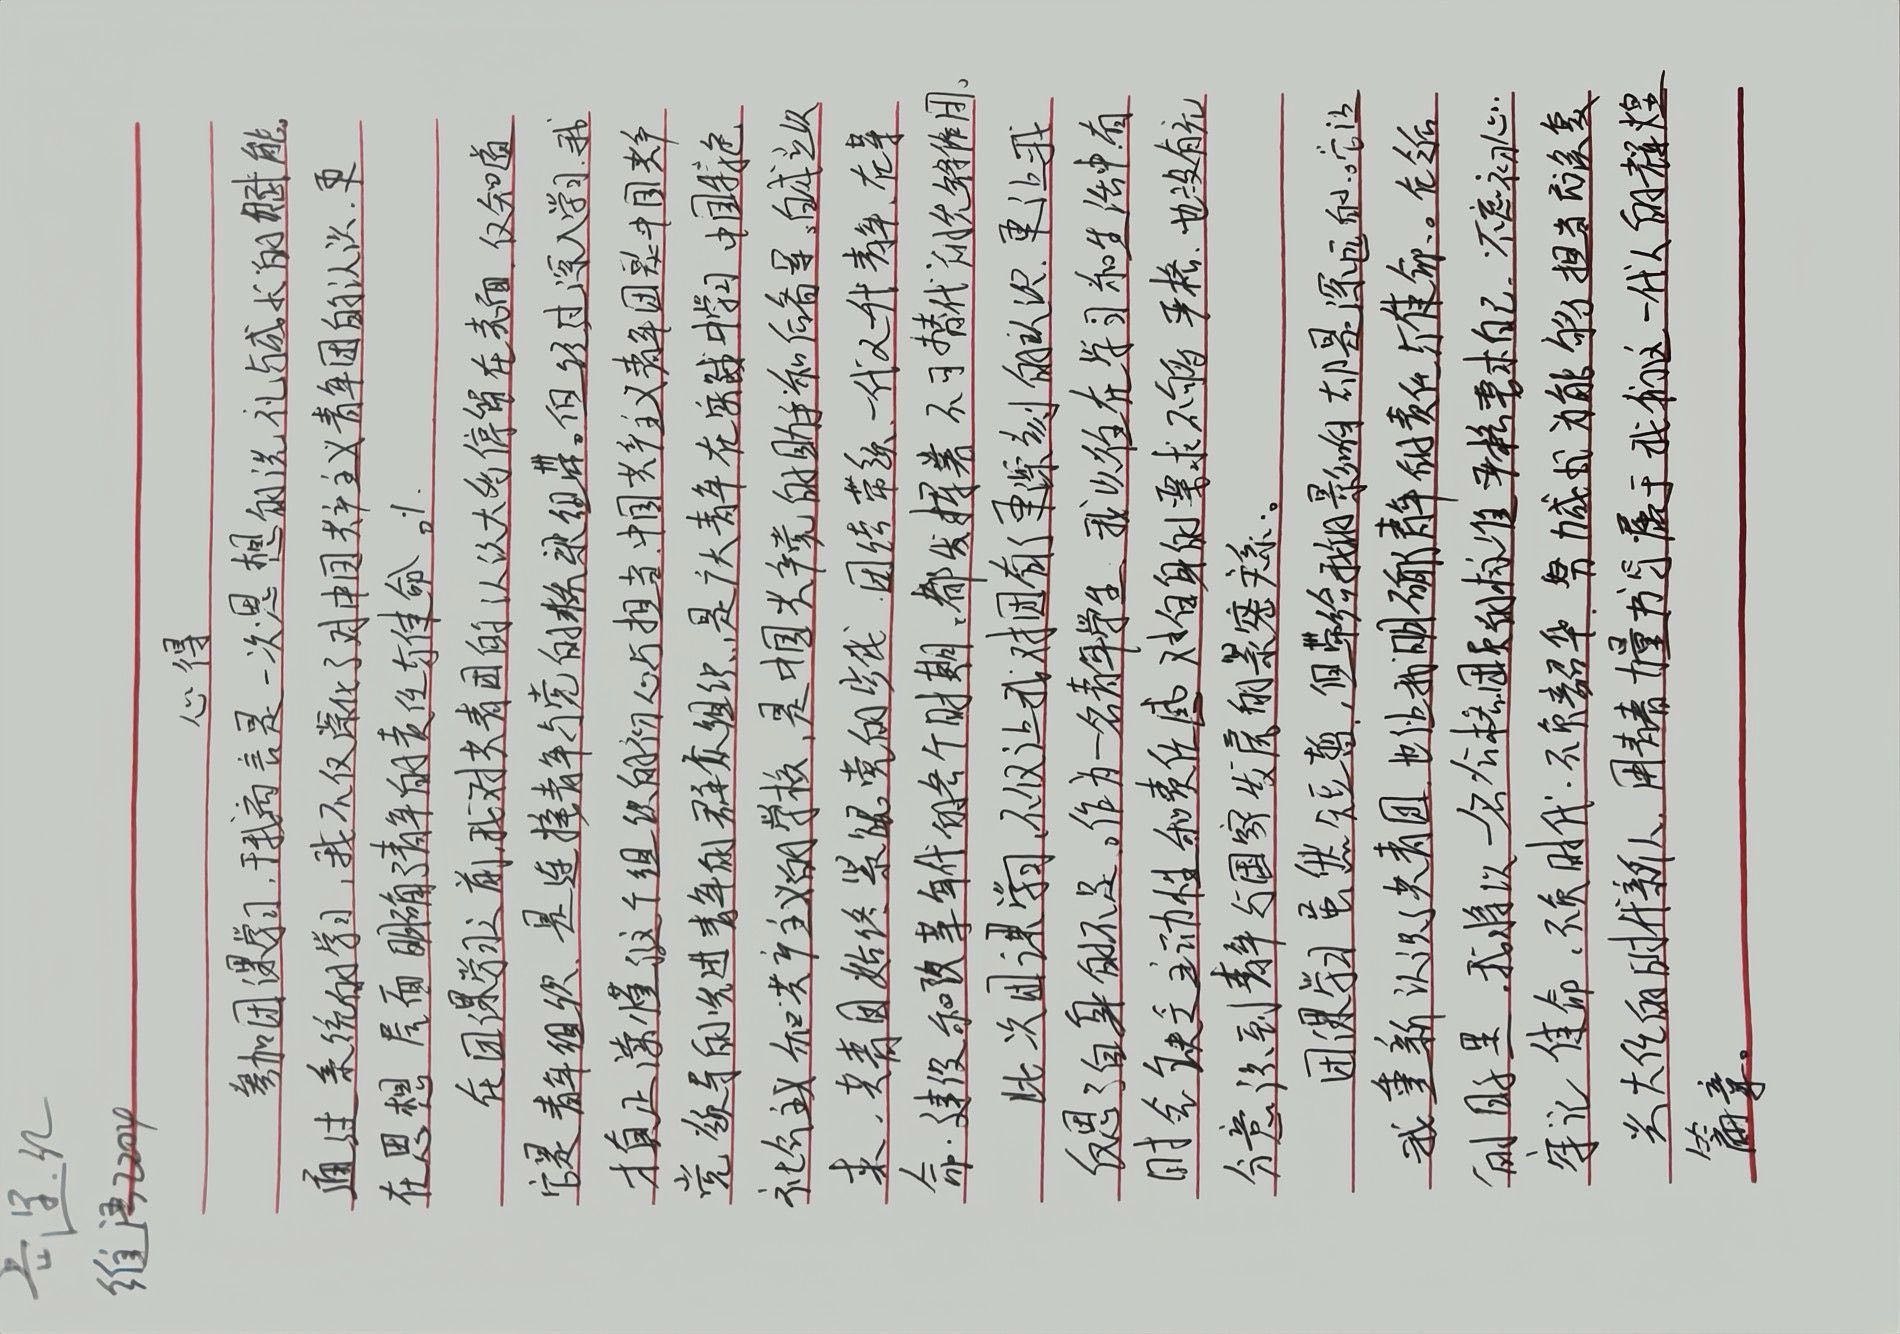 维语2204
心得
参加团课学习,于我而言是一次思想的洗礼与成长的赋能。
通过系统的学习,我不仅深化了对中国共产主义青年团的认识.更
在思想层面明确了青年的责任与使命。
在团课学习之前,我对共青团的认识大多停留在表面.仅知道
它是青年组织、是连接青年与党的桥梁纽带。但经过深入学习.我
才真正读懂这个组织的初心与担当.中国共产主义青年团是中国共产
党领导的先进青年的群众组织、是广大青年在实践中学习中国特色
社会主义和共产主义的学校、是中国共产党的助手和后备军。自成立以
来.共青团始终紧跟党的步伐.团结带领一代又一代青年.在革
命.建设和改革年代的各个时期.都发挥着不可替代的先锋作用。
此次团课学习,不仅让我对团有了更深刻的认识.更让我
反思了自身的不足。作为一名青年学生.我以往在学习和生活中有
时会缺乏主动性和责任感.对自身的要求不够严格.也没有充
分意识到青年与国家发展的紧密关系。
团课学习虽然短暂,但带给我的影响却是深远的。它让
我重新认识了共青团.也让我明确青年的责任与使命。在今后
的日子里.我将以一名合格团员的标准严格要求自己.不忘初心.
牢记使命.不负时代.不负韶华.努力成长为能够担当民族复
兴大任的时代新人.用青春力量书写属于我们这一代人的辉煌
篇章。